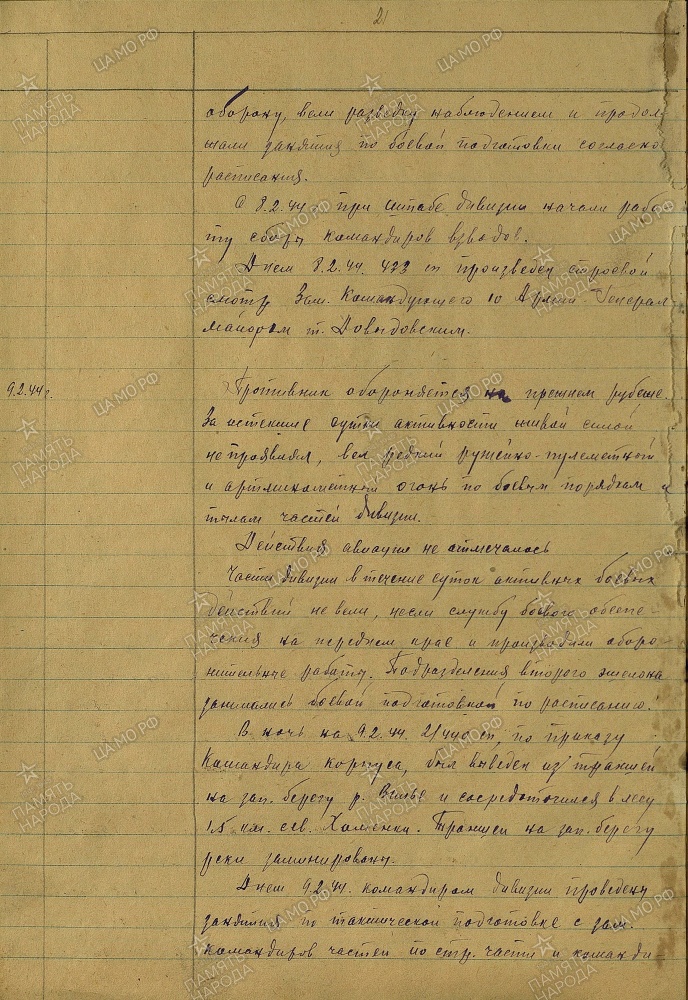 21
оборону, вели разведку наблюдением и продол-
жали занятия по боевой подготовки согласно
расписания.
С 8.2.44 при штабе дивизии начали рабо-
ту сборы командиров взводов.
Днем 8.2.44. 433 сп произведен строевой
смотр Зам. Командующего 10 Армии Генерал
майором т. Довыдовским.
9.2.44 г. Противник обороняется на прежнем рубеже.
За истекшие сутки активности живой силой
не проявлял, вел редкий ружейно-пулеметной
и артминометной огонь по боевым порядкам и
тылам частей дивизии.
Действия авиации не отмечалось
Части дивизии в течение суток активных боевых
действий не вели, несли службу боевого обеспе-
чения на переднем крае и производили оборо-
нительные работы. Подразделения второго эшелона
занимались боевой подготовкой по расписанию.
В ночь на 9.2.44. 2/440 сп, по приказу
Командира корпуса, был выведен из траншей
на зап. берегу р. и сосредоточился в лесу
1.5 км. сев. Хоменки. Траншеи на зап. берегу
реки заминированы.
Днем 9.2.44. командиром дивизии проведены
занятия по тактической подготовке с зам.
командиров частей по стр. части и команди-
ПАМЯТЬ НАРОДА
ЦАМО РФ